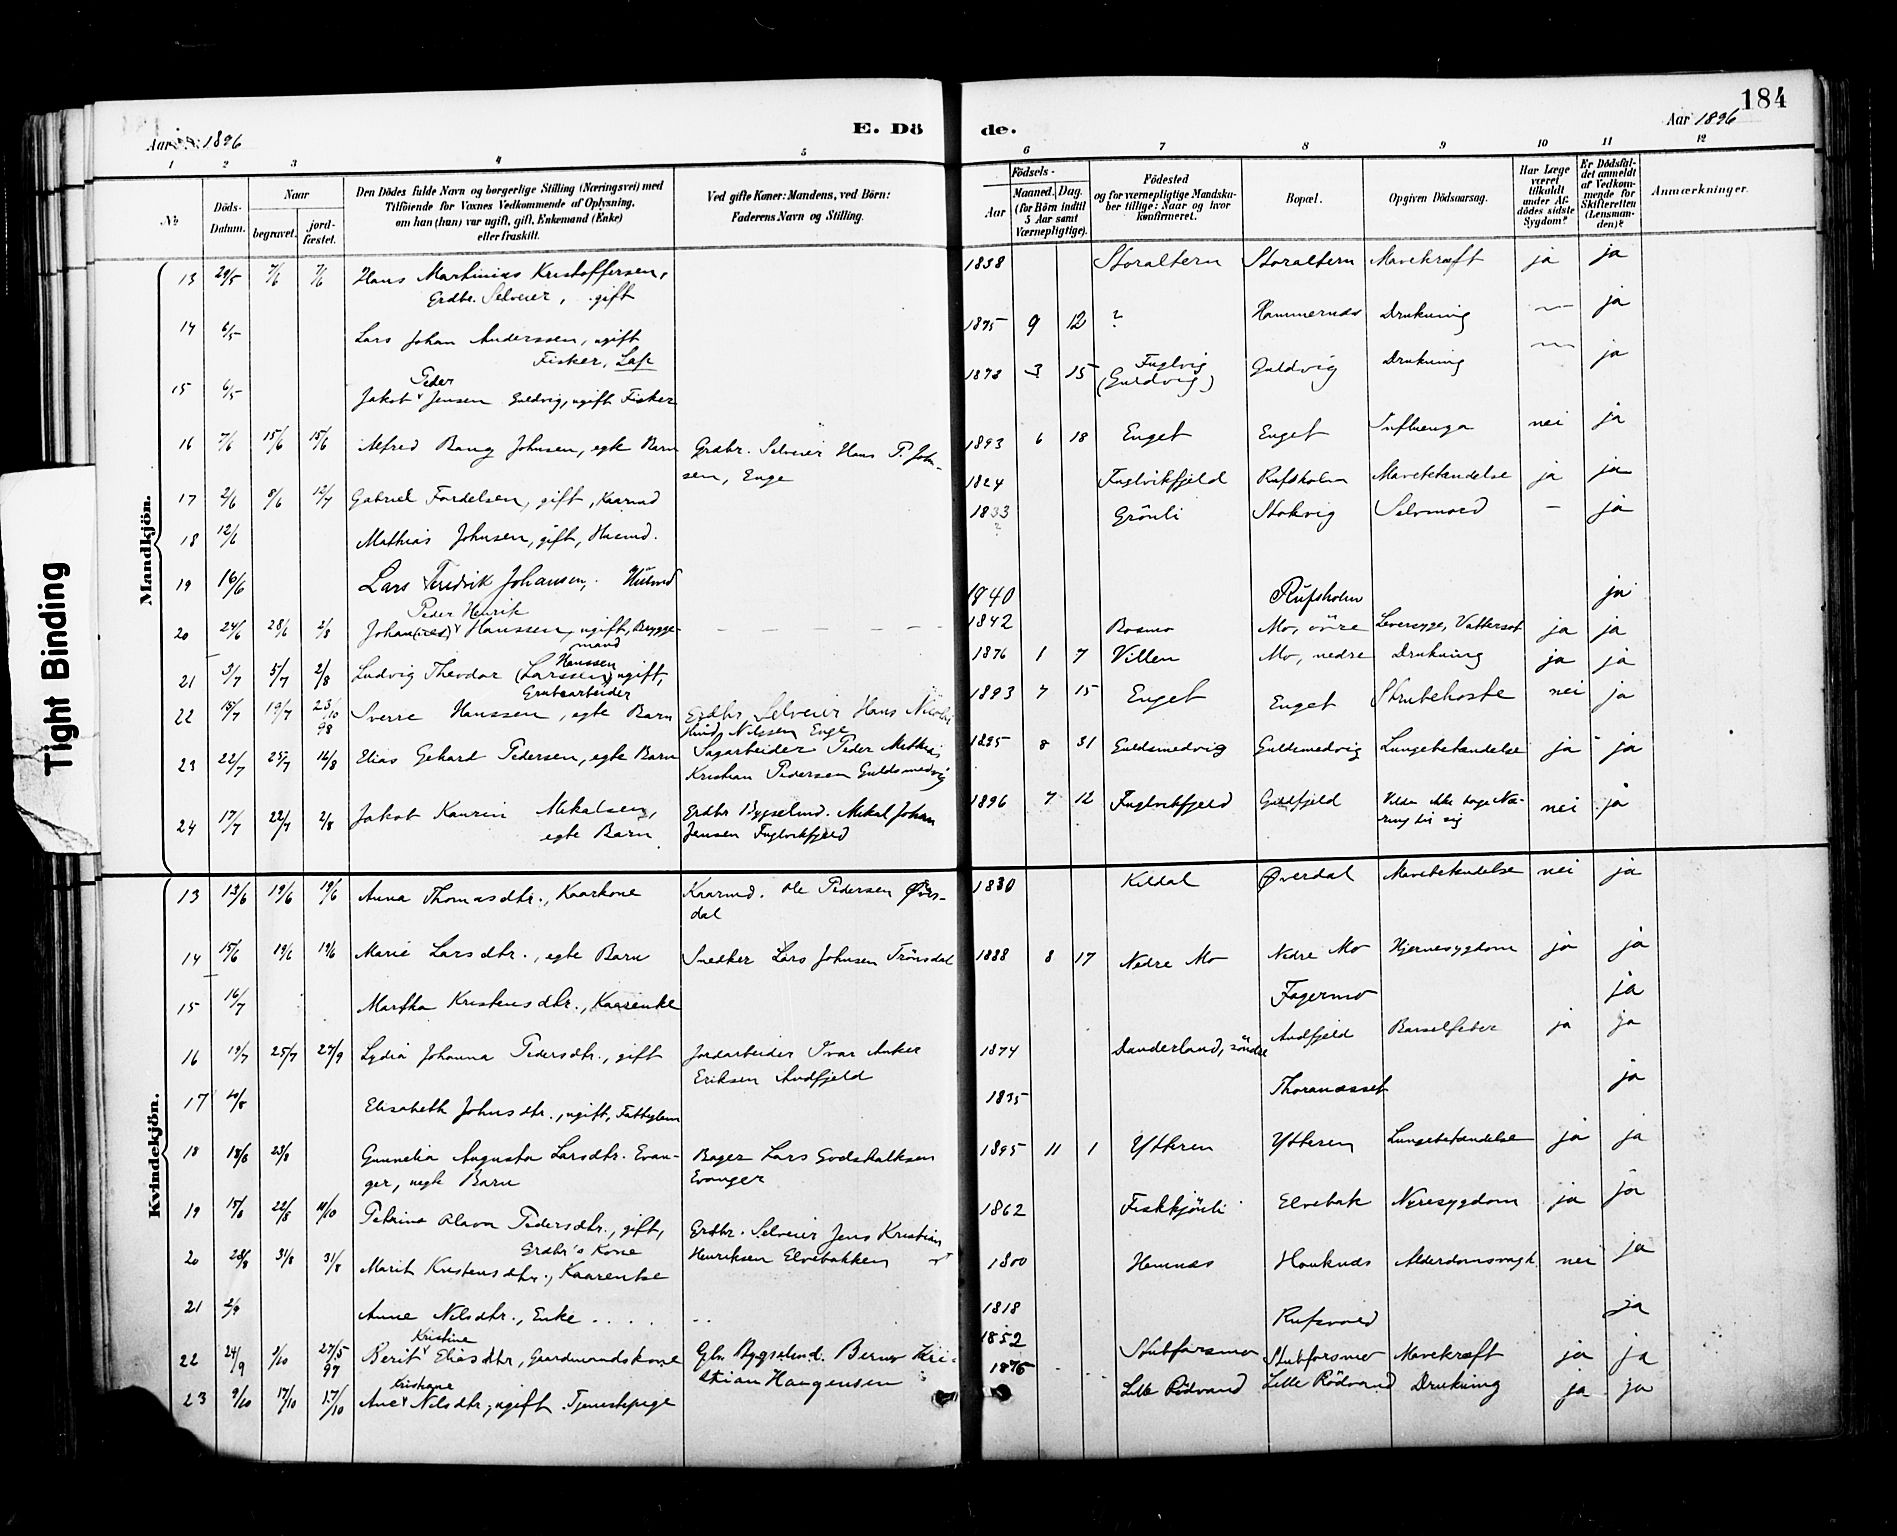 184
Aar 1896
E. Dö
de.
Aar 1896
1 2 3 4 5 6 7 8 9 10 11 12
№
Döds-Datum.
Naar
begravet.
jord-fæstet.
Den Dödes fulde Navn og borgerlige Stilling (Næringsvei) med
Tilföiende for Voxnes Vedkommende af Oplysning,
om han (hun) var ugift, gift, Enkemand (Enke)
eller fraskilt.
Ved gifte Koner: Mandens, ved Börn:
Faderens Navn og Stilling.
Födsels-
Aar
Maaned. Dag.
(for Börn indtil
5 Aar samt
Værnepligtige).
Födested
og for værnepligtige Mandska-
ber tillige: Naar og hvor
konfirmeret.
Bopæl.
Opgiven Dödsaarsag.
Har Læge
været
tilkaldt
under Af-
dödes sidste
Sygdom?
Er Dödsfal-
det anmeldt
af Vedkom-
mende for
Skifteretten
(Lensman-
den)?
Anmærkninger.
Tight Binding
Mandkjön.
13 29/5 7/6 7/6 Hans Martinius Kristoffersen, Storaltern Storaltern Mavekræft ja ja 1838
Selveier, gift
14 6/5 Lars Johan Anderssen, ugift 1875 9 12 ? Hammernæs Drukning — ja
Fisker, Lap
15 6/5 Jakob Peder Jensen Guldvig, ugift Fisker 1878 3 15 Fuglvig (Guldvig) Guldvig Drukning — ja
16 7/6 15/6 15/6 Alfred Bang Johnsen, egte Barn Grdbr. Selveier Hans P. John-
sen, Enge 1893 6 18 Enget Enget Influenza nei ja
17 2/6 8/6 12/7 Gabriel Fordelsen, gift, Kaarmd 1824 Fuglvikfjeld Rufsholm Mavebetændelse ja ja
18 12/6 Mathias Johnsen, gift, Husmd. 1833 ? Grönli Stokvig Selvmord — ja
19 16/6 Lars Fredrik Johansen, Husmd 1840 Rufsholm ja
20 24/6 28/6 2/8 Peder Henrik Hanssen, ugift, Brygge-
mand 1842 Bosmo Mo, övre Leversyge, Vattersot ja ja
21 3/7 5/7 2/8 Ludvig Theodor (Larssen) Hanssen ugift,
Grubearbeider 1876 1 7 Villen Mo, nedre Drukning ja ja
22 15/7 19/7 23/10 98 Sverre Hanssen, egte Barn Grdbr Selveier Hans
Nilssen Enge 1893 7 15 Enget Enget Strubehoste nei ja
23 22/7 25/7 16/8 Elias Gehard Pedersen, egte Barn Sagarbeider Peder Mathias
Kristian Pedersen Guldsmedvig 1895 8 31 Guldsmedvig Guldsmedvig Lungebetændelse ja ja
24 17/7 22/7 2/8 Jakob Kaurin Mikalsen,
egte Barn Grdbr Bygselmd. Mikal Johan
Jensen Fuglvikfjeld 1896 7 12 Fuglvikfjeld Guldfjeld Vilde ikke tage Næ-
ring til sig nei ja
Kvindekjön.
13 13/6 19/6 19/6 Anna Thomasdtr., Kaarkone Kaarmd. Ole Pedersen Øver-
dal 1830 Kildal Øverdal Mavebetændelse nei ja
14 15/6 19/6 19/6 Marie Larsdtr., egte Barn Snedker Lars Johnsen Trönsdal 1888 8 17 Nedre Mo Nedre Mo Hjernesygdom ja ja
15 16/7 Martha Kristensdtr., Kaarenke Fagermo ja
16 19/7 25/7 27/9 Lydia Johanna Pedersdtr., gift Jordarbeider Ivar Anker
Eriksen Andfjeld 1874 Dunderland, söndre Andfjeld Barselfeber ja ja
17 Elisabeth Johnsdtr., ugift, Fattiglem 1835 Thoranæsset ja
18 18/8 23/8 Gunnelia Augusta Larsdtr. Evan-
ger, uegte Barn Bager Lars Godskalksen
Evanger 1895 11 1 Ytteren Ytteren Lungebetændelse ja ja
19 15/8 22/8 10/10 Petrine Olava Pedersdtr., gift,
Grdbr's Kone Grdbr. Selveier Jens Kristian
Henriksen Elvebakken 1862 Fiskkjönli Elvebak Nyresygdom ja ja
20 28/8 31/8 31/8 Marit Kristensdtr., Kaarenke 1800 Hemnæs Hauknæs Alderdomssvagh nei ja
21 2/9 Anne Nilsdtr., Enke 1818 ja
22 24/9 2/10 27/5 97 Berit Kristine Eliasdtr, Gaardmandskone Gbr. Bygselmd. Kri-
stian Haugensen 1852 Stubforsmo Stubforsmo Mavekræft ja ja
23 9/10 17/10 17/10 Ane Kristiane Nilsdtr, ugift Tjenestepige 1875 Lille Rödvand Lille Rödvand Drukning ja ja